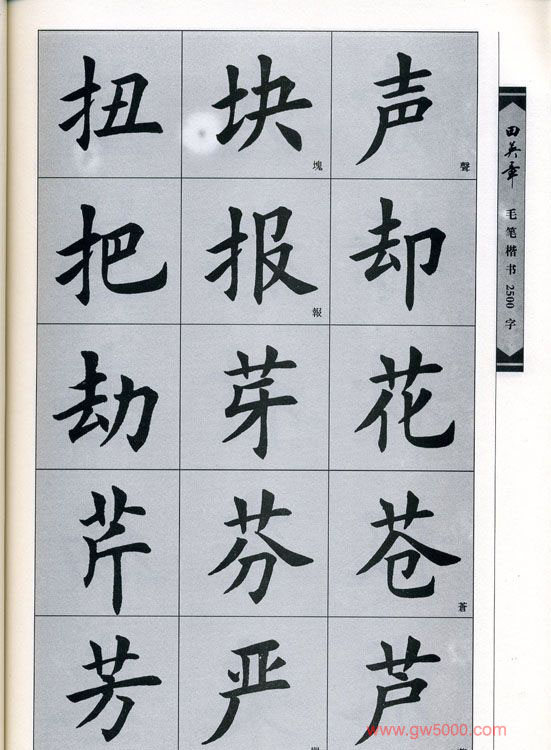 扭 块 塊 声 聲
把 报 報 却
劫 芽 花
芹 芬 苍 蒼
芳 严 芦
田英章 毛笔楷书2500字
www.gw5000.com